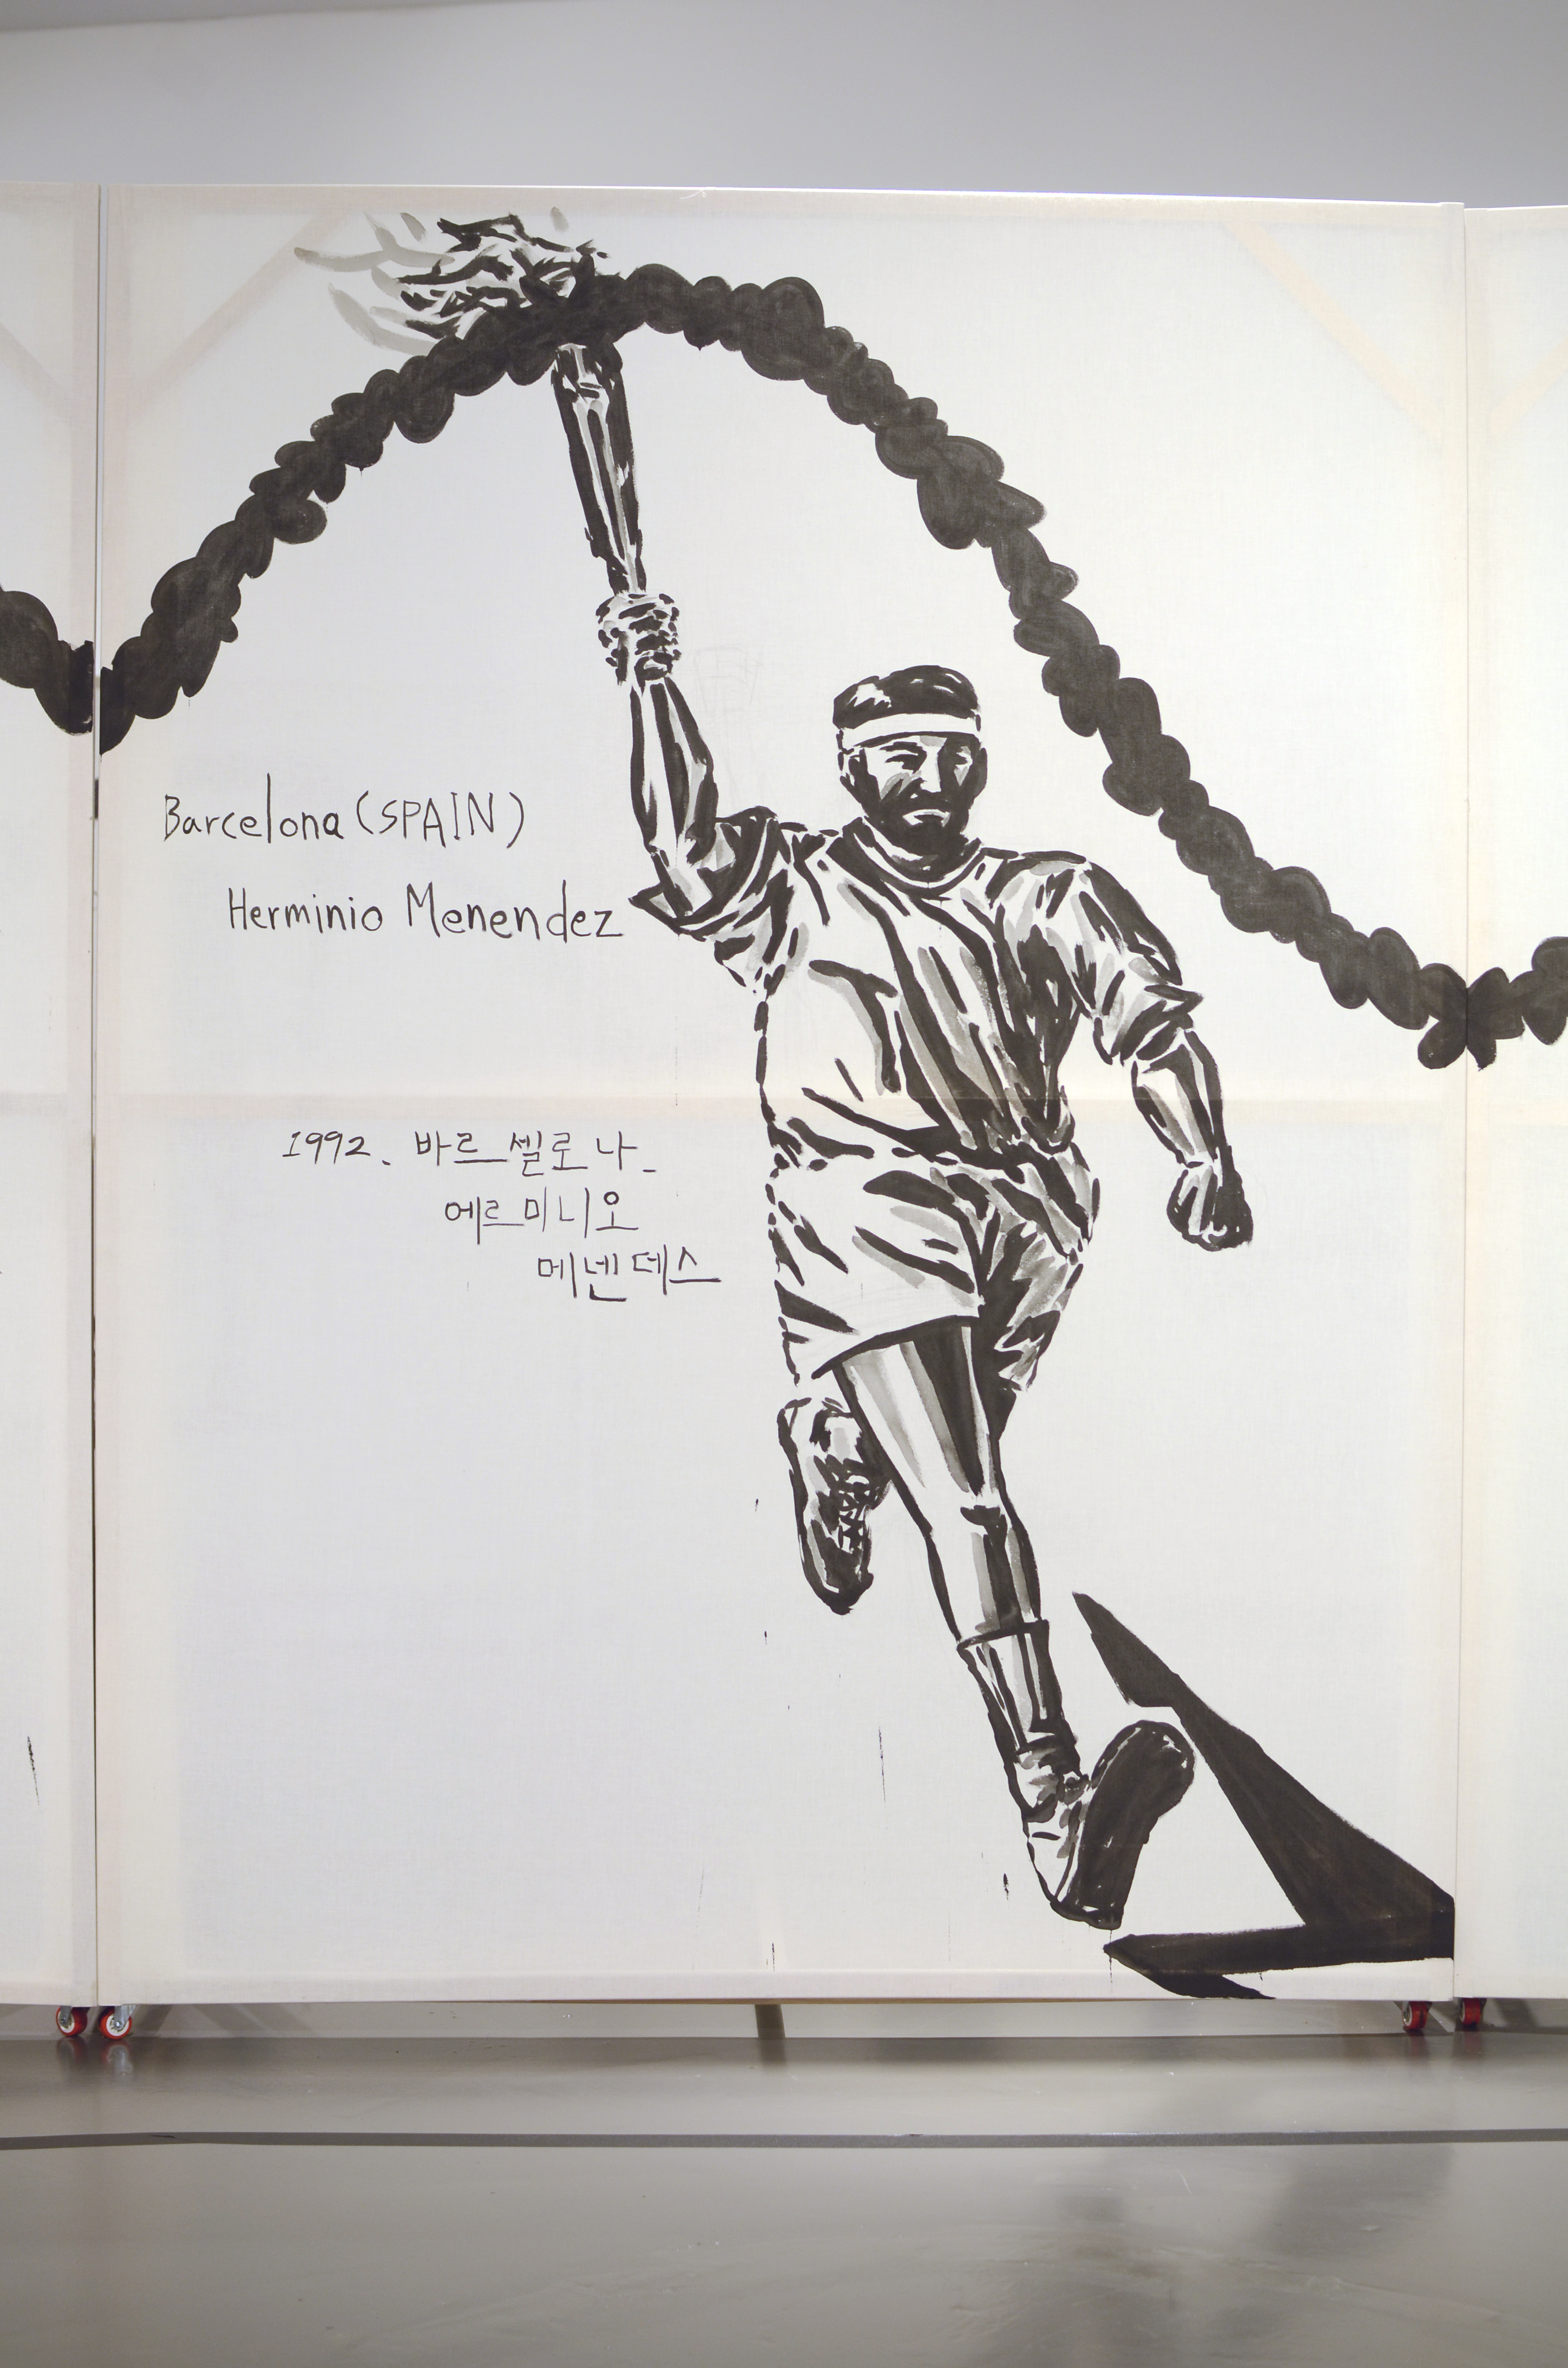 Barcelona (SPAIN)
Herminio Menendez
1992. 바르셀로나_
에르미니오
메넨데스